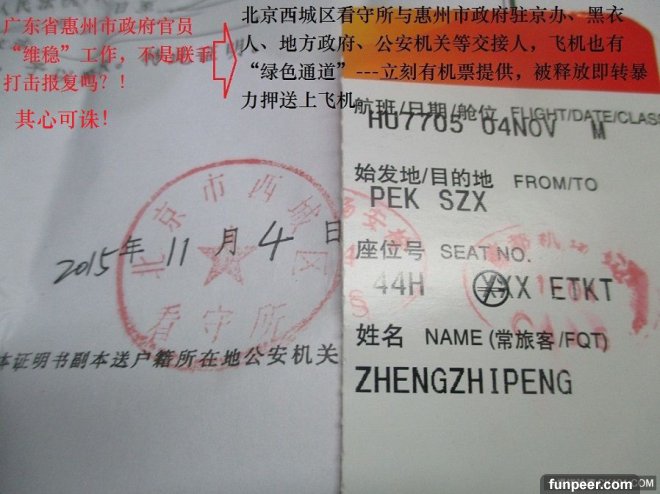 广东省惠州市政府官员
“维稳”工作，不是联手
打击报复吗？！
其心可诛！
北京西城区看守所与惠州市政府驻京办、黑衣
人、地方政府、公安机关等交接人，飞机也有
“绿色通道”---立刻有机票提供，被释放即转暴
力押送上飞机。
航班/日期/舱位 FLIGHT/DATE/CLASS
HU7705 04NOV M
始发地/目的地 FROM/TO
PEK SZX
座位号 SEAT NO.
44H XXX ETKT
姓名 NAME (常旅客/FQT)
ZHENGZHIPENG
北京市西城区
看守所
2015年 11 月 4 日
本证明书副本送户籍所在地公安机关
funpeer.com